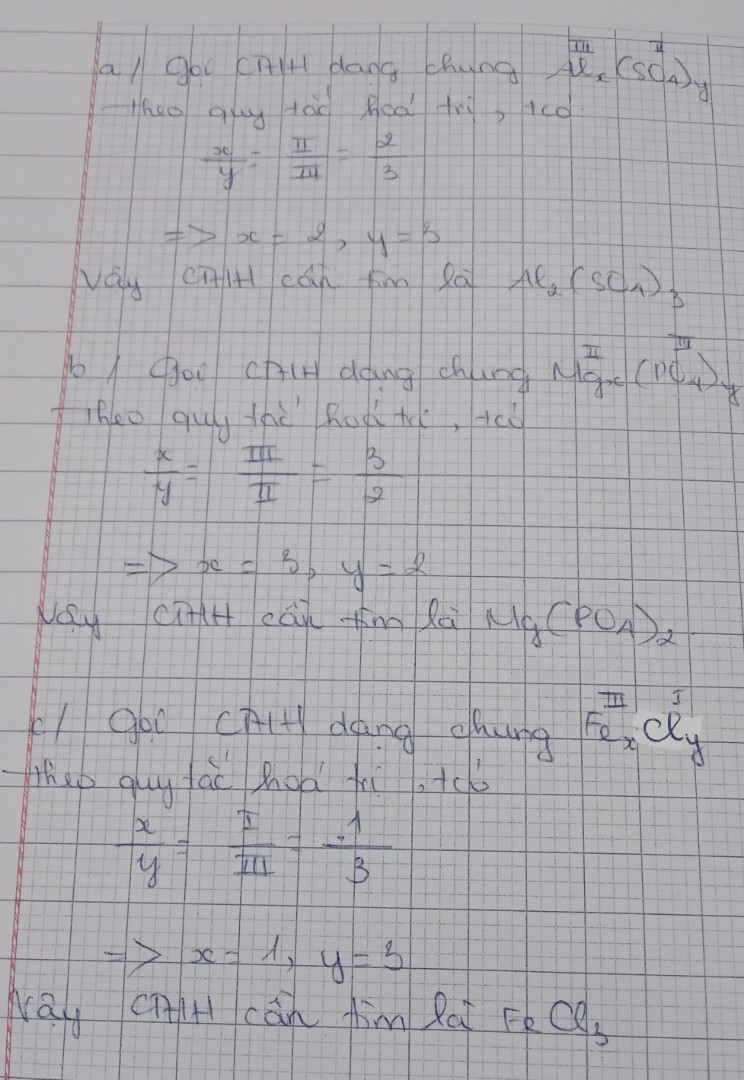 a/ Gọi CTHH dạng chung Alₓ(SO₄)y
III II
theo quy tắc hoá trị, tcó
x/y = II/III = 2/3
=> x = 2, y = 3
Vậy CTHH cần tìm là Al₂(SO₄)₃
b/ Gọi CTHH dạng chung Mgₓ(PO₄)y
II III
theo quy tắc hoá trị, tcó
x/y = III/II = 3/2
=> x = 3, y = 2
Vậy CTHH cần tìm là Mg(PO₄)₂
c/ Gọi CTHH dạng chung FeₓCly
III I
theo quy tắc hoá trị, tcó
x/y = I/III = 1/3
=> x = 1, y = 3
Vậy CTHH cần tìm là FeCl₃